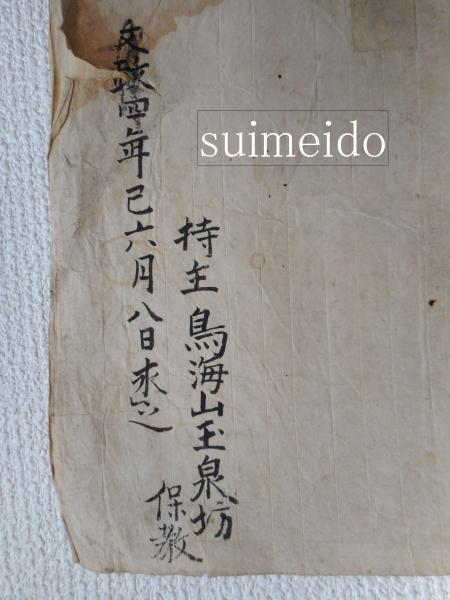 suimeido
持主鳥海山玉泉坊
保教
文政四年巳六月八日求之